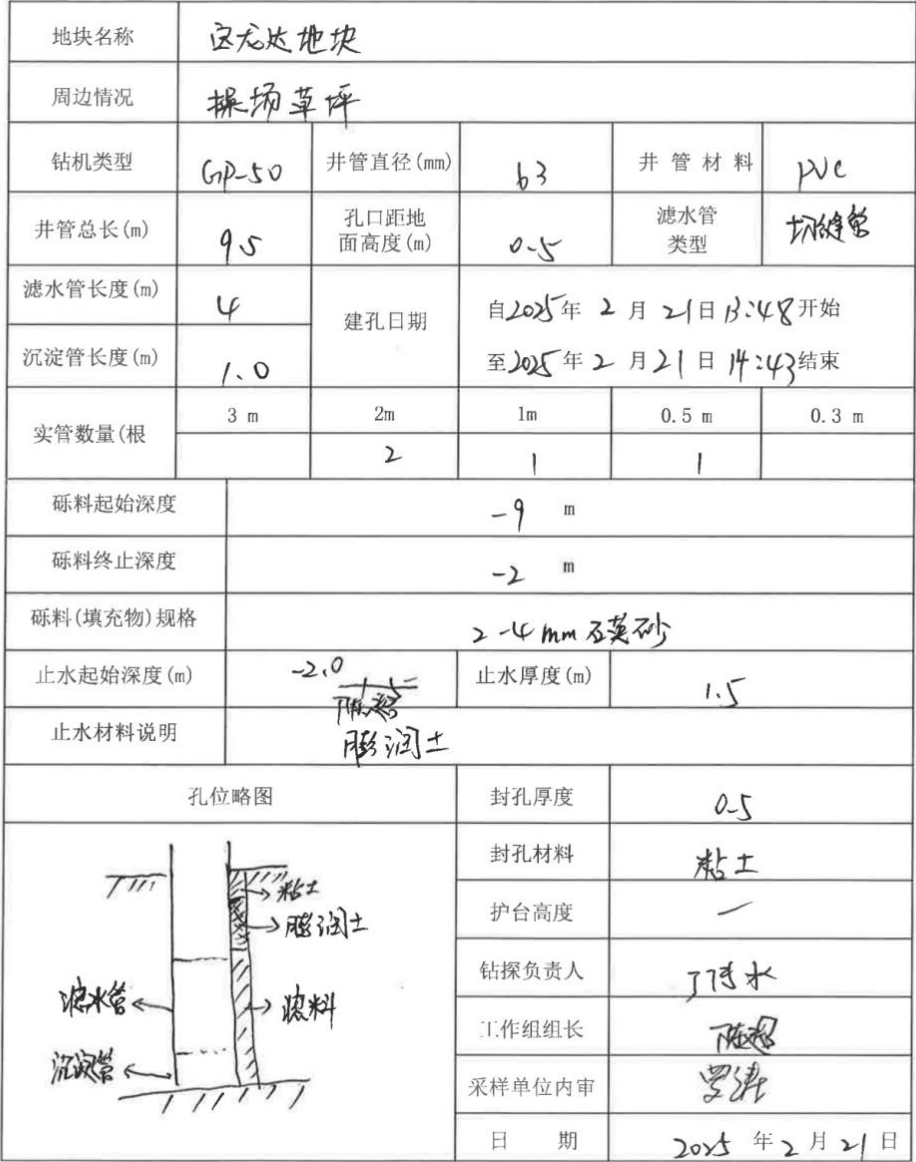 地块名称 宝龙达地块
周边情况 操场草坪
钻机类型 GP-50 井管直径(mm) 63 井管材料 PVC
井管总长(m) 9.5 孔口距地面高度(m) 0.5 滤水管类型 切缝管
滤水管长度(m) 4 建孔日期 自2025年 2 月 21日 13:48开始
沉淀管长度(m) 1.0 至2025年 2 月 21 日 14:43结束
实管数量(根 3 m 2m 1m 0.5 m 0.3 m
2 1 1
砾料起始深度 -9 m
砾料终止深度 -2 m
砾料(填充物)规格 2-4mm 石英砂
止水起始深度(m) -2.0 止水厚度(m) 1.5
陈超
止水材料说明 膨润土
孔位略图 封孔厚度 0.5
封孔材料 粘土
护台高度 —
钻探负责人
工作组组长 陈超
采样单位内审
日 期 2025 年 2 月 21 日
粘土
膨润土
滤水管
滤料
沉淀管